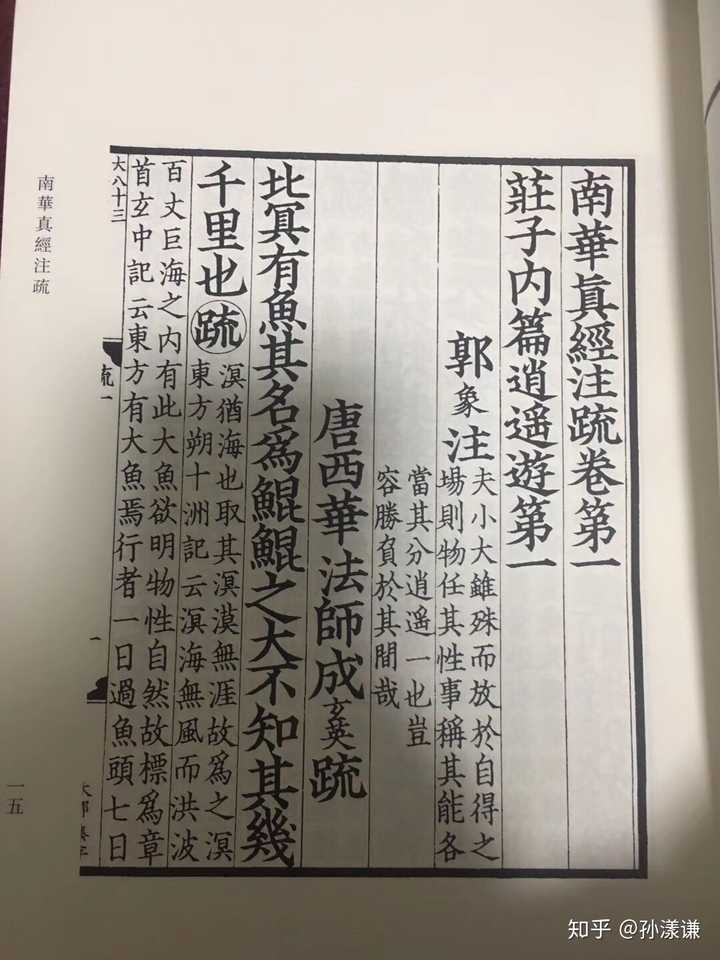 南華真經注疏卷第一
莊子内篇逍遥遊第一
郭象注
夫小大雖殊而放於自得之
場則物任其性事稱其能各
當其分逍遥一也豈
容勝負於其間哉
唐西華法師成玄英疏
北冥有魚其名爲鯤鯤之大不知其幾
千里也疏
溟猶海也取其溟漠無涯故爲之溟
東方朔十洲記云溟海無風而洪波
百丈巨海之内有此大魚欲明物性自然故標爲章
首玄中記云東方有大魚焉行者一日過魚頭七日
大八十三
疏一
一
南華真經注疏
一五
知乎 @孙漾谦